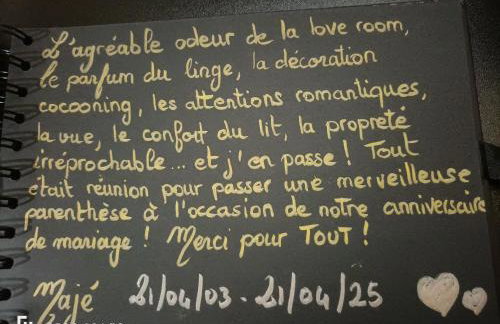 L'agréable odeur de la love room,
le parfum du linge, la décoration
cocooning, les attentions romantiques,
la vue, le confort du lit, la propreté
irréprochable... et j'en passe ! Tout
était réunion pour passer une merveilleuse
parenthèse à l'occasion de notre anniversaire
de mariage ! Merci pour TOUT !
Majé 21/04/03 - 21/04/25